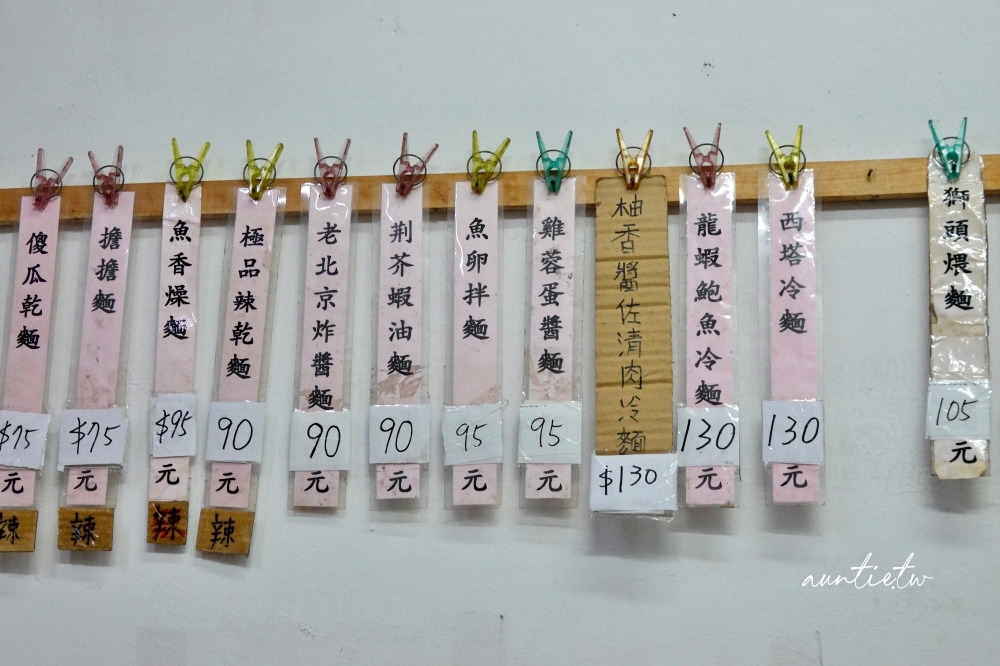 傻瓜乾麵
$75
元
辣
擔擔麵
$75
元
辣
魚香燥麵
$95
元
辣
極品辣乾麵
90
元
辣
老北京炸醬麵
90
元
荆芥蝦油麵
90
元
魚卵拌麵
95
元
雞蓉蛋醬麵
95
元
柚香醬佐清肉冷麵
$130
龍蝦鮑魚冷麵
130
元
西塔冷麵
130
元
獅頭煨麵
105
元
auntie.tw